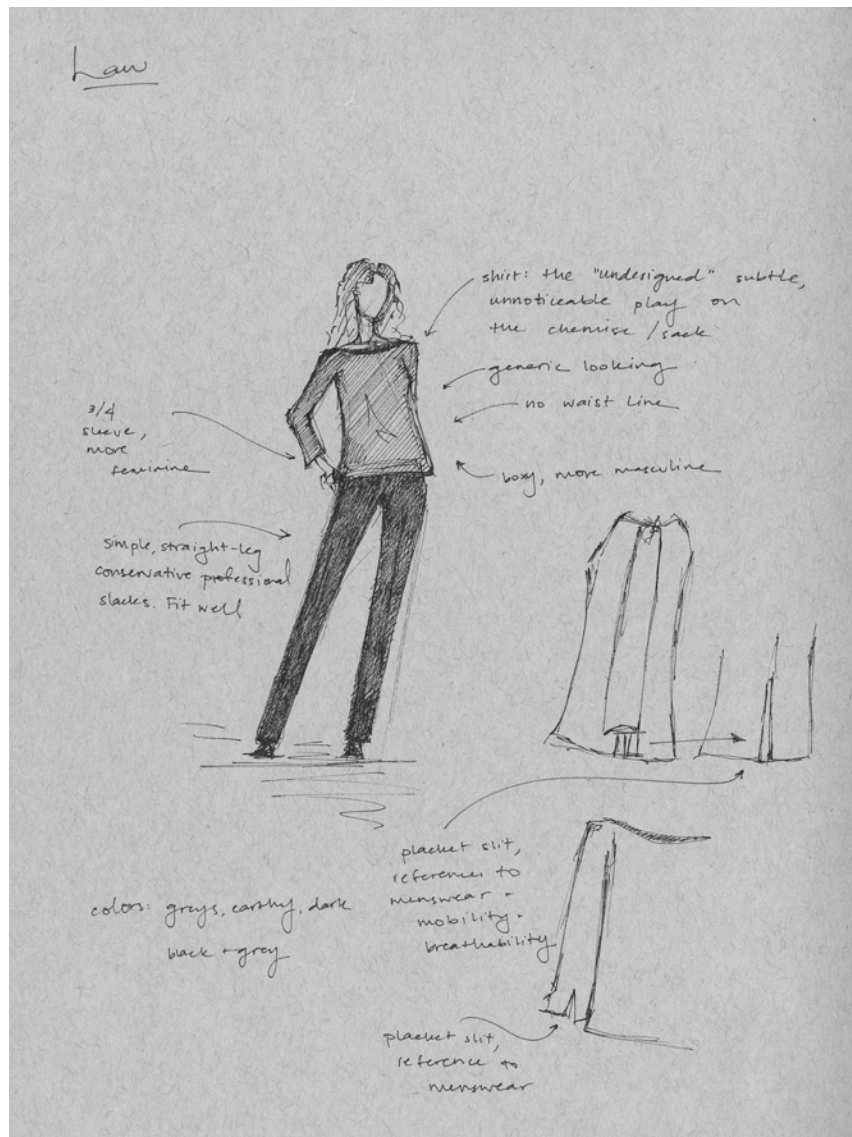 Law
shirt: the "undesigned" subtle,
unnoticeable play on
the chemise / sack
generic looking
no waist line
boxy, more masculine
3/4
sleeve,
more
feminine
simple, straight-leg
conservative professional
slacks. Fit well
placket slit,
reference to
menswear -
mobility -
breathability
colors: greys, earthy, dark
black + grey
placket slit,
reference to
menswear